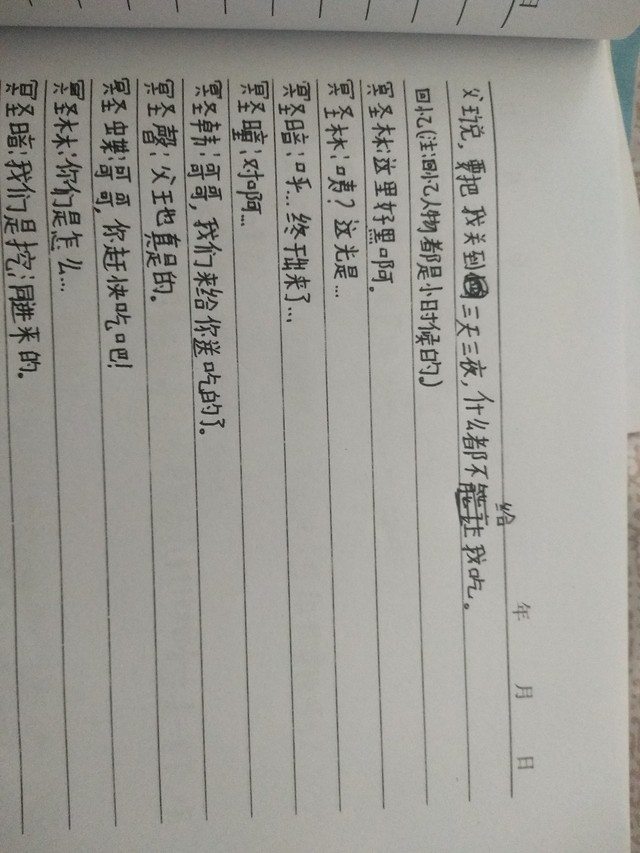 年 月 日
父王说，要把我关到三天三夜，什么都不给我吃。
回忆(注:回忆人物都是小时候的。)
冥圣林:这里好黑啊。
冥圣林:咦？这光是…
冥圣暗:呼…终于出来了…
冥圣暗:对啊…
冥圣韩:哥哥，我们来给你送吃的了。
冥圣馨:父王也真是的。
冥圣巢:哥哥，你赶快吃吧!
冥圣林:你们是怎么…
冥圣暗:我们是挖洞进来的。